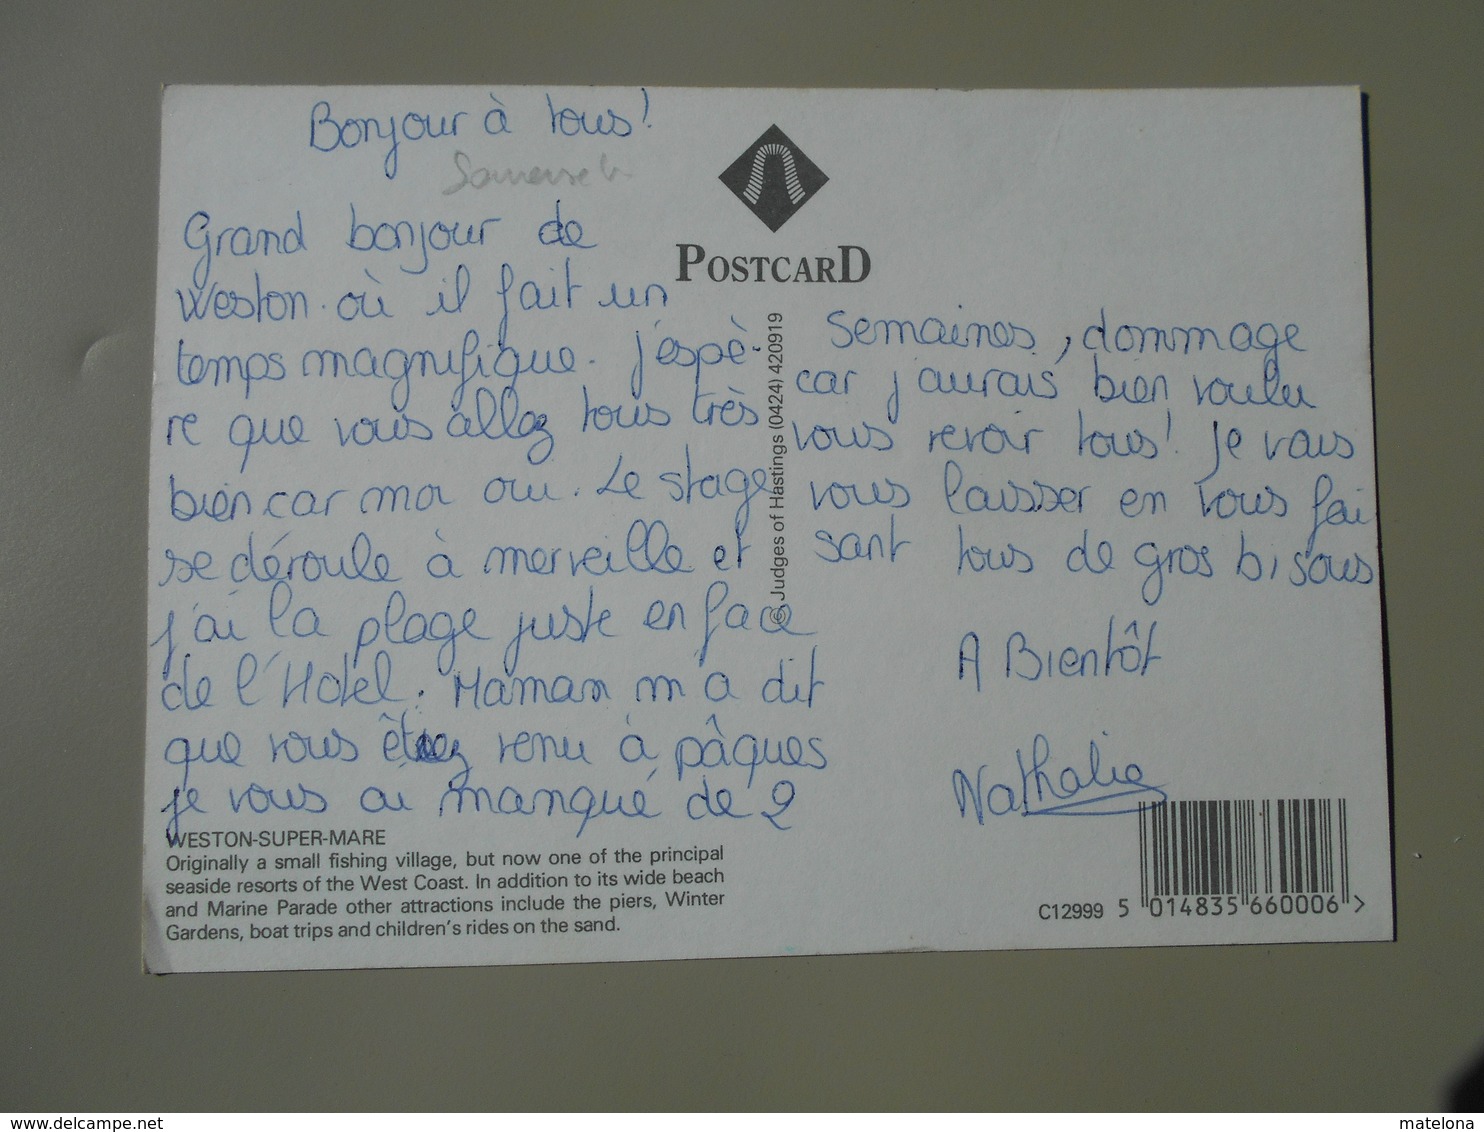 Bonjour à tous!
Somerset
Grand bonjour de
Weston. où il fait un
temps magnifique. j'espè-
re que vous allez tous très
bien car moi oui. Le stage
se déroule à merveille et
j'ai la plage juste en face
de l'Hotel. Maman m'a dit
que vous êtiez venu à pâques
je vous ai manqué de 2
WESTON-SUPER-MARE
Originally a small fishing village, but now one of the principal
seaside resorts of the West Coast. In addition to its wide beach
and Marine Parade other attractions include the piers, Winter
Gardens, boat trips and children's rides on the sand.
POSTCARD
© Judges of Hastings (0424) 420919
semaines, dommage
car j'aurais bien voulu
vous revoir tous! je vais
vous laisser en vous fai
sant tous de gros bisous
A Bientôt
Nathalie
C12999 5 014835 660006 >
www.delcampe.net
matelona